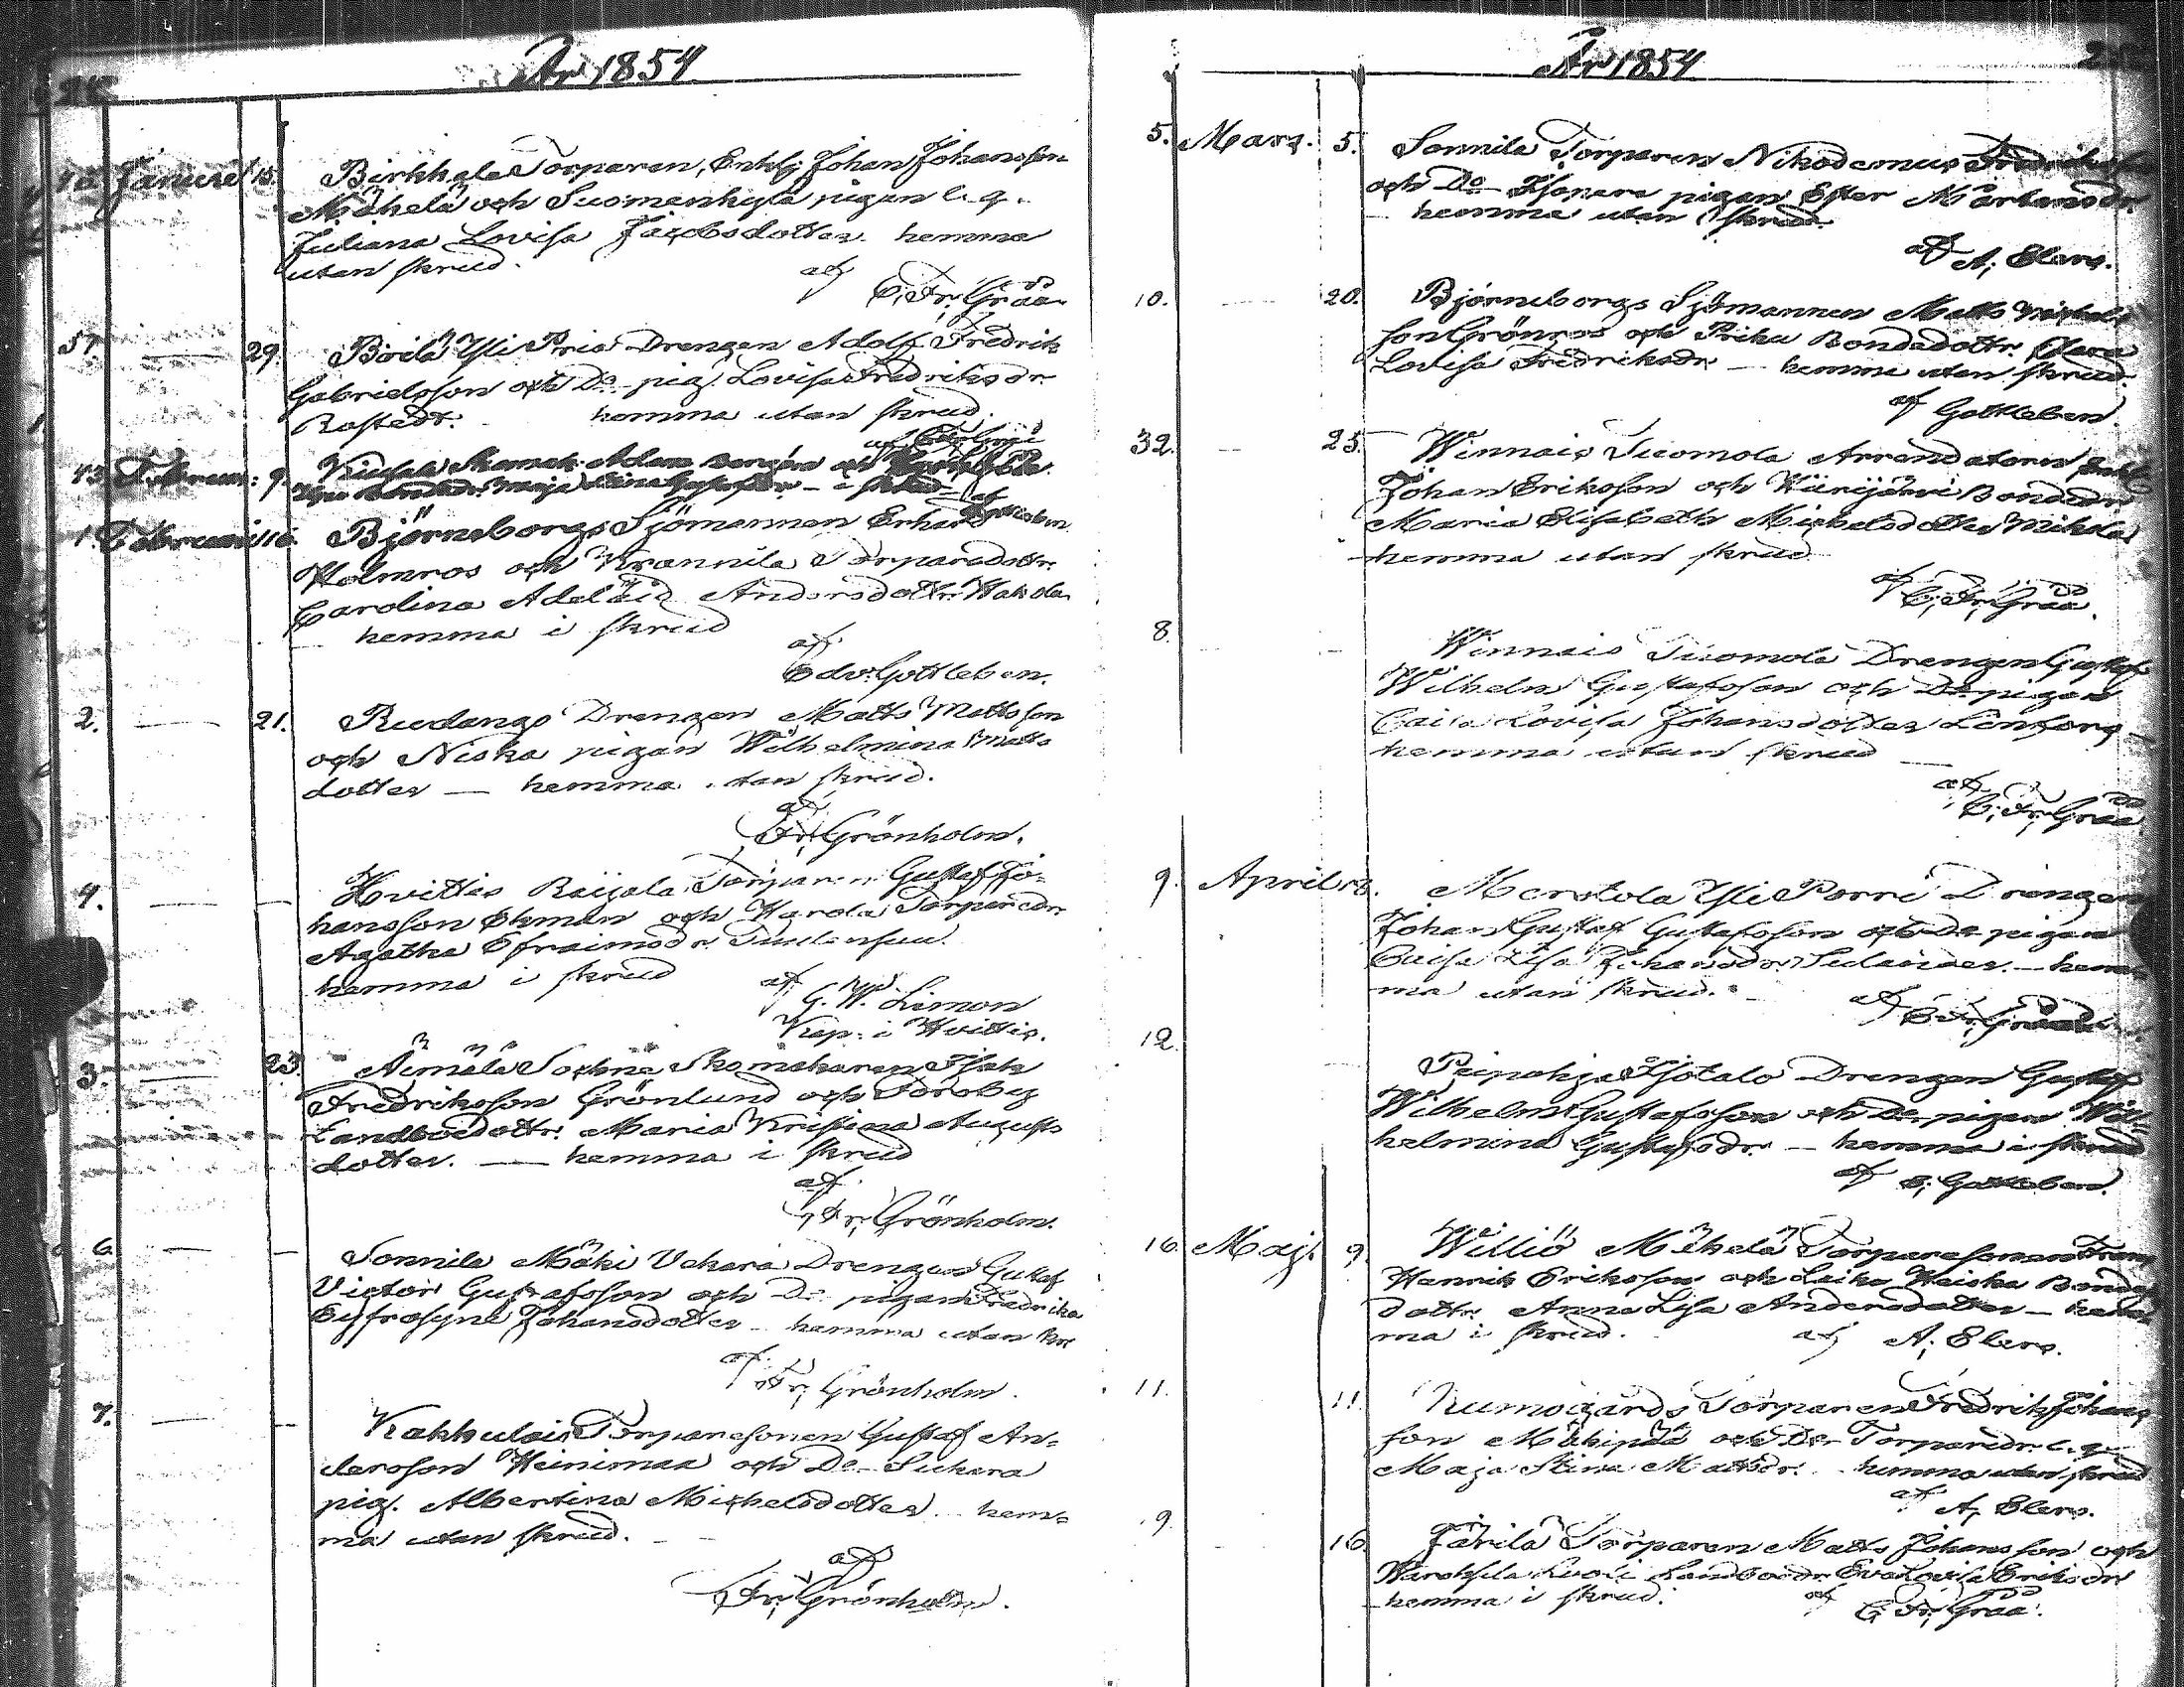 År 1854
Januari 15. Birkkala Torparen, Enkl: Johan Johansson
Mäkelä och Suomenkylä pigan e. q.
Juliana Lovisa Jacobsdotter hemma
utan skrud.
af
C. Fr. Gråå
57. — 29. Böilä Yli Pria Drengen Adolf Fredrik
Gabrielsson och Do pig. Lovisa Fredriksdr
Rostedt. hemma utan skrud.
43. Februari 9. Adam och
Maja Stina Gustafsdr — i skrud af
1. Februari 16. Björneborgs Sjömannen Erhard
Holmros och Krannila Torparedottr.
Carolina Adelaid Andersdottr. Hakola
hemma i skrud
af
Edv. Gottleben.
2. — 21. Rudanga Drengen Matts Mattsson
och Niska pigan Wilhelmina Matts
dotter — hemma utan skrud.
af
Fr. Grönholm.
4. — — Hvittis Raijala Torparen Gustaf Jo-
hansson Ekman och Harola Torparedr.
Agatha Efraimsdr.
hemma i skrud
af
G. W. Limon
Kap. i Hvittis.
3. — 23. Äimälä Sockne Skomakaren Isak
Fredriksson Grönlund och Forsby
Landboedottr. Maria Kristina Augusts
dotter. — hemma i skrud
af
Fr. Grönholm.
6. — — Sonnila Mäki Vakara Drengen Gustaf
Victor Gustafsson och Do pigan Fredrika
Eufrosyne Johansdotter — hemma utan skr
af
Fr. Grönholm.
7. — — Kakkulais Torparesonen Gustaf An-
dersson Heinimaa och Do Sukara
pig. Albertina Michelsdotter hem-
ma utan skrud.
af
Fr. Grönholm.
År 1854
5. Mars. 5. Sonnila Torparen Nikodemus Fredriksson
och Do pigan Ester Mårtensdr.
hemma utan skrud.
af A. Elers.
10. — 20. Björneborgs Sjömannen Matts Michels
son Grönros och Prika Bondedottr. Clara
Lovisa Fredriksdr — hemma utan skrud.
af Gottleben.
32. — 25. Winnais Suomola Arrendatoren Enkl
Johan Eriksson och Kiurijärvi Bondedr
Maria Elisabeth Michelsdotter Mikola
hemma utan skrud
af
C. Fr. Gråå.
8. — — Winnais Suomola Drengen Gustaf
Wilhelm Gustafsson och Do pigan
Caisa Lovisa Johansdotter Lenberg —
hemma utan skrud —
af
C. Fr. Gråå
9. April Merstola Yli Parri Drengen
Johan Gustaf Gustafsson och Do pigan
Caisa Lisa Johansdr — hem-
ma utan skrud.
af
C. Fr. Gråå
12. Peipohja Isotalo Drengen Gustaf
Wilhelm Gustafsson och Do pigan Wil-
helmina Gustafsdr. — hemma i skrud
af E. Gottleben.
16. Maj. 9. Williö Mäkelä Torparesonen Frans
Henrik Eriksson och Laiha Heiska Bonde-
dottr. Anna Lisa Andersdotter — hem-
ma i skrud. af A. Elers.
11. 11. Kumogårds Torparen Fredrik Johans
son Mäkinpää och Do Torparedr. e. q.
Maja Stina Mattsdr. hemma utan skrud
af A. Elers.
19. — 16. Järilä Torparen Matts Johansson och
Landboedr Eva Lovisa Eriksdr
hemma i skrud. af C. Fr. Gråå.